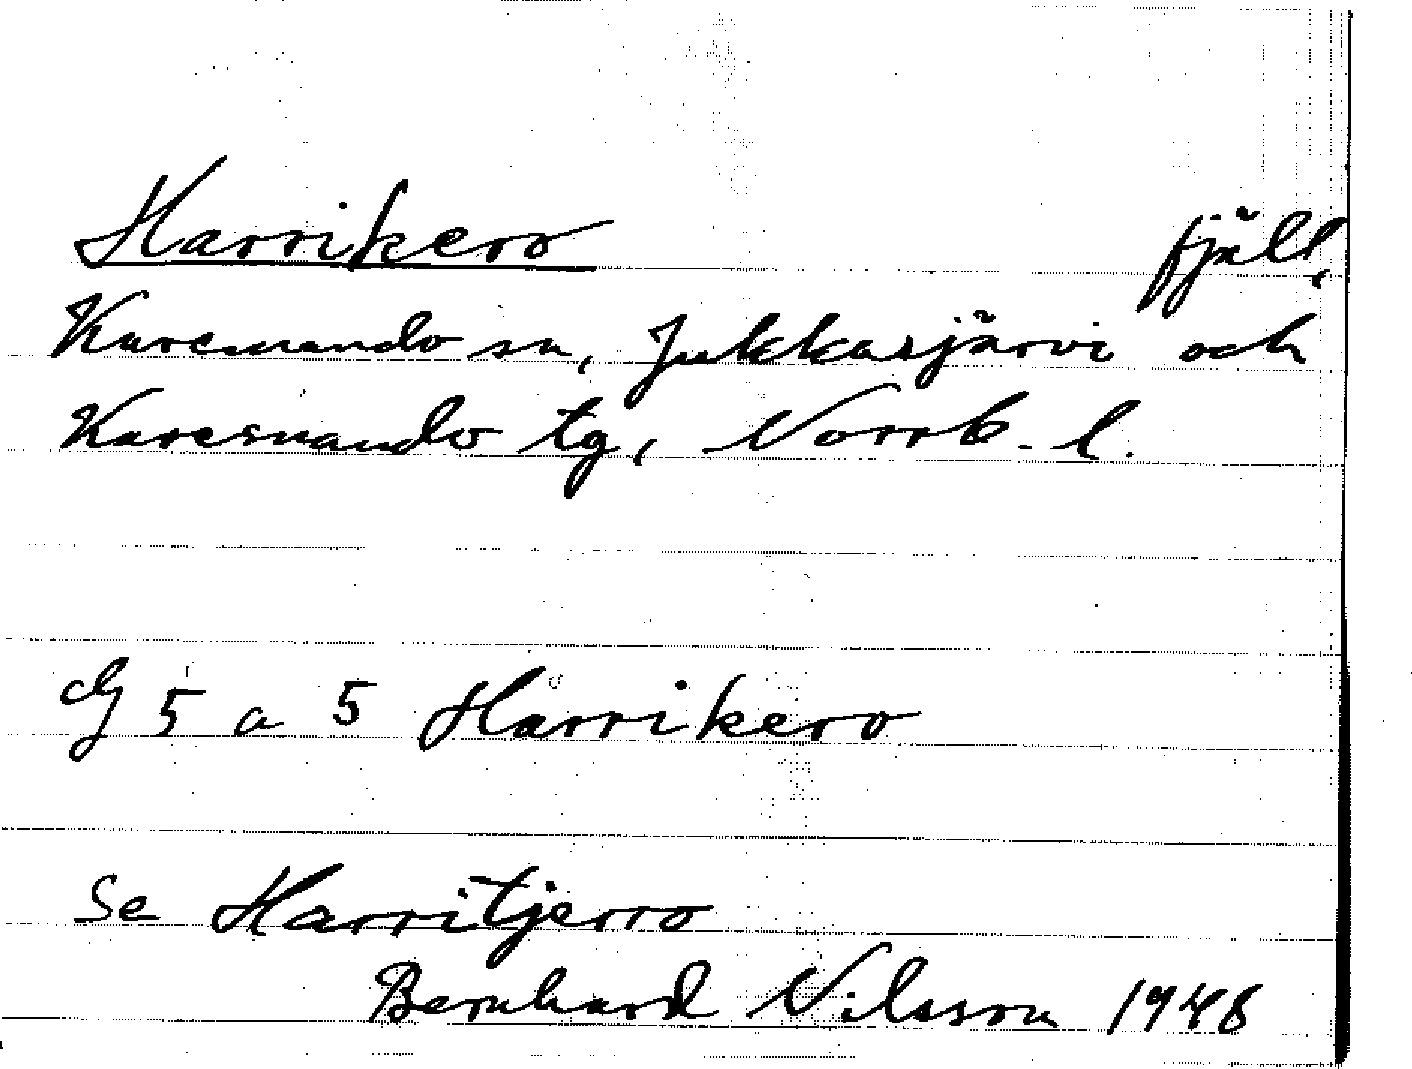 Harrikero fjäll,
Karesuando sn, Jukkasjärvi och
Karesuando tg, Norrb. l.
dg 5 a 5 Harrikero
Se Harritjerro
Bernhard Nilsson 1948